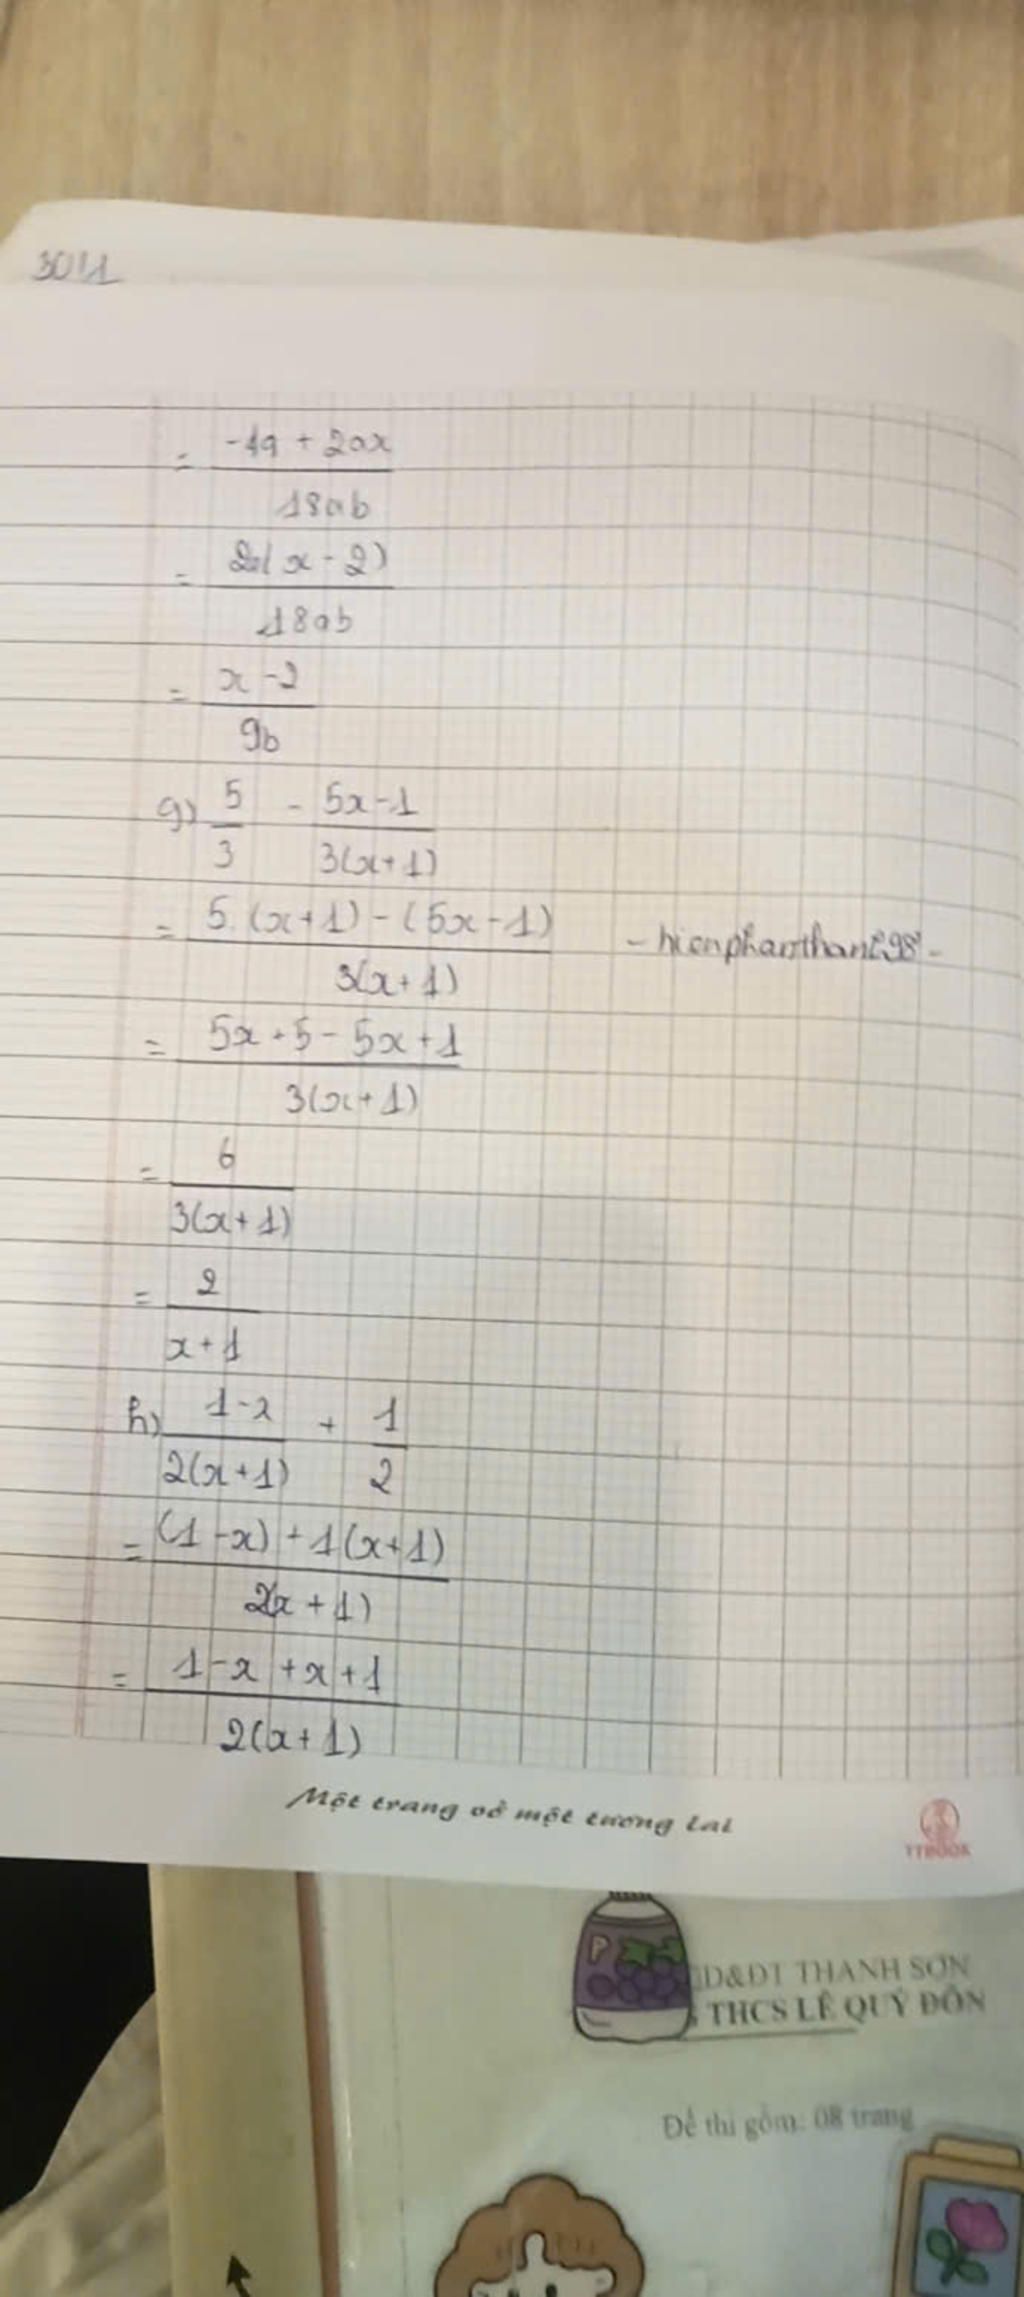 = (-4a + 2ax)/(18ab)
= (2a(x - 2))/(18ab)
= (x - 2)/(9b)
g) 5/3 - (5x - 1)/(3(x + 1))
= (5.(x + 1) - (5x - 1))/(3(x + 1))
= (5x + 5 - 5x + 1)/(3(x + 1))
= 6/(3(x + 1))
= 2/(x + 1)
h) (1 - x)/(2(x + 1)) + 1/2
= ((1 - x) + 1(x + 1))/(2(x + 1))
= (1 - x + x + 1)/(2(x + 1))
Một trang vở một tương lai
TTBOOK
P
GD&ĐT THANH SƠN
THCS LÊ QUÝ ĐÔN
Đề thi gồm: 08 trang